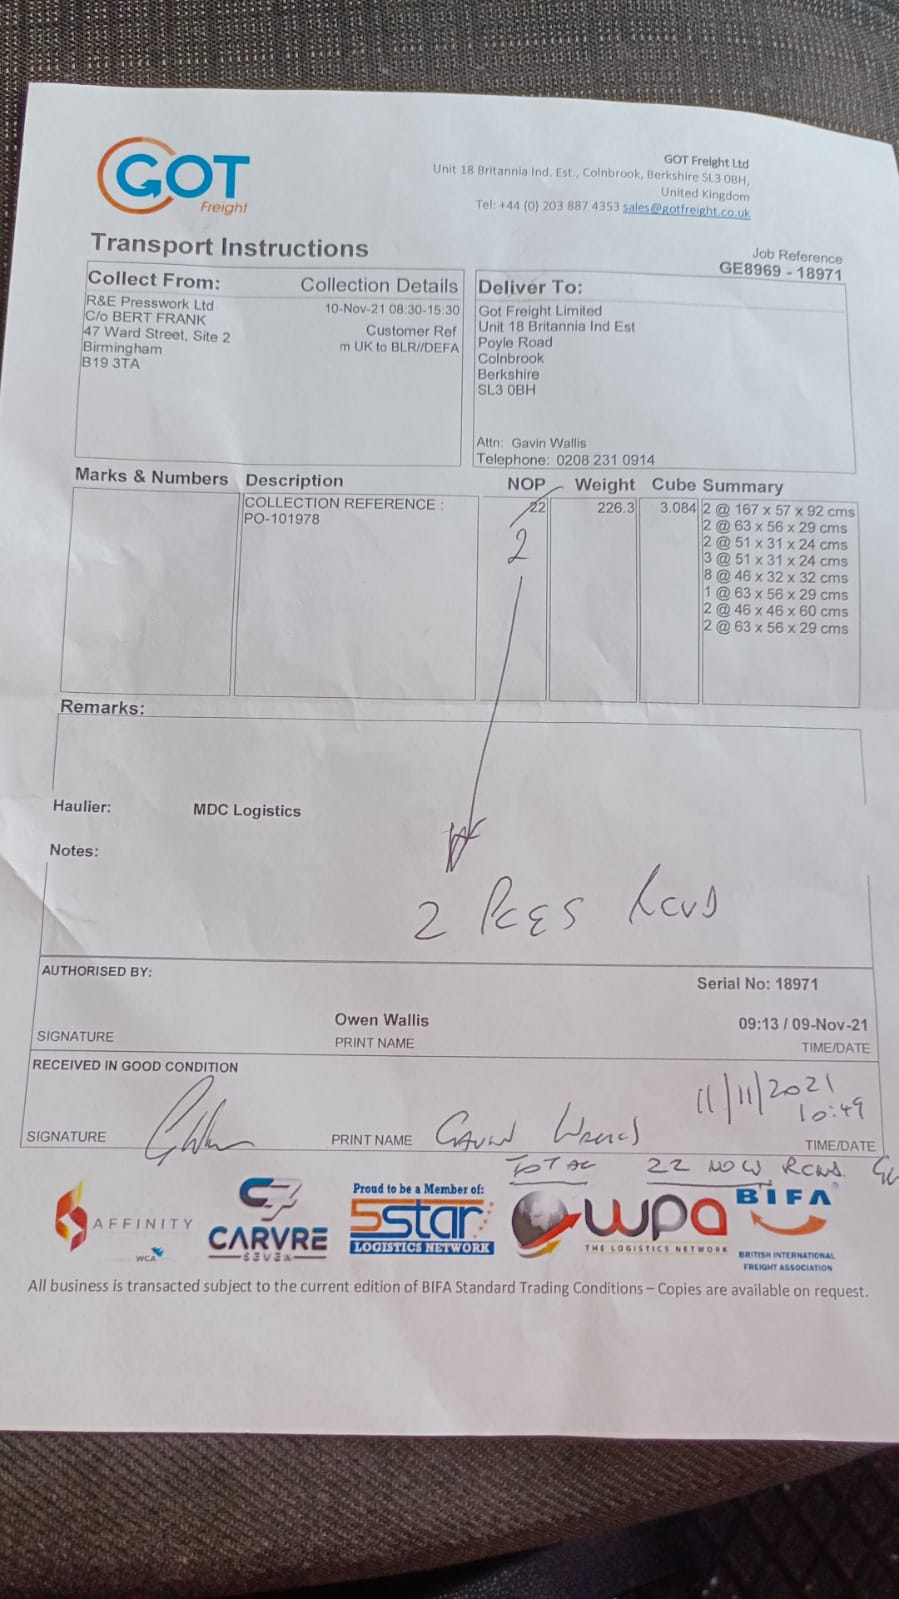 GOT
Freight
GOT Freight Ltd
Unit 18 Britannia Ind. Est., Colnbrook, Berkshire SL3 0BH,
United Kingdom
Tel: +44 (0) 203 887 4353 sales@gotfreight.co.uk
Transport Instructions
Job Reference
GE8969 - 18971
Collect From:
Collection Details
R&E Presswork Ltd
C/o BERT FRANK
47 Ward Street, Site 2
Birmingham
B19 3TA
10-Nov-21 08:30-15:30
Customer Ref
m UK to BLR//DEFA
Deliver To:
Got Freight Limited
Unit 18 Britannia Ind Est
Poyle Road
Colnbrook
Berkshire
SL3 0BH
Attn: Gavin Wallis
Telephone: 0208 231 0914
Marks & Numbers Description NOP Weight Cube Summary
COLLECTION REFERENCE :
PO-101978
22
2
226.3
3.084
2 @ 167 x 57 x 92 cms
2 @ 63 x 56 x 29 cms
2 @ 51 x 31 x 24 cms
3 @ 51 x 31 x 24 cms
8 @ 46 x 32 x 32 cms
1 @ 63 x 56 x 29 cms
2 @ 46 x 46 x 60 cms
2 @ 63 x 56 x 29 cms
Remarks:
Haulier: MDC Logistics
Notes:
2 PCES RCVD
AUTHORISED BY:
Serial No: 18971
Owen Wallis
09:13 / 09-Nov-21
SIGNATURE
PRINT NAME
TIME/DATE
RECEIVED IN GOOD CONDITION
11/11/2021
10:49
SIGNATURE
PRINT NAME GAVIN WALLIS
TIME/DATE
TOTAL 22 NOW RCVD.
AFFINITY
WCA
CARVRE
SEVEN
Proud to be a Member of:
5star
LOGISTICS NETWORK
wpa
THE LOGISTICS NETWORK
BIFA
BRITISH INTERNATIONAL
FREIGHT ASSOCIATION
All business is transacted subject to the current edition of BIFA Standard Trading Conditions – Copies are available on request.